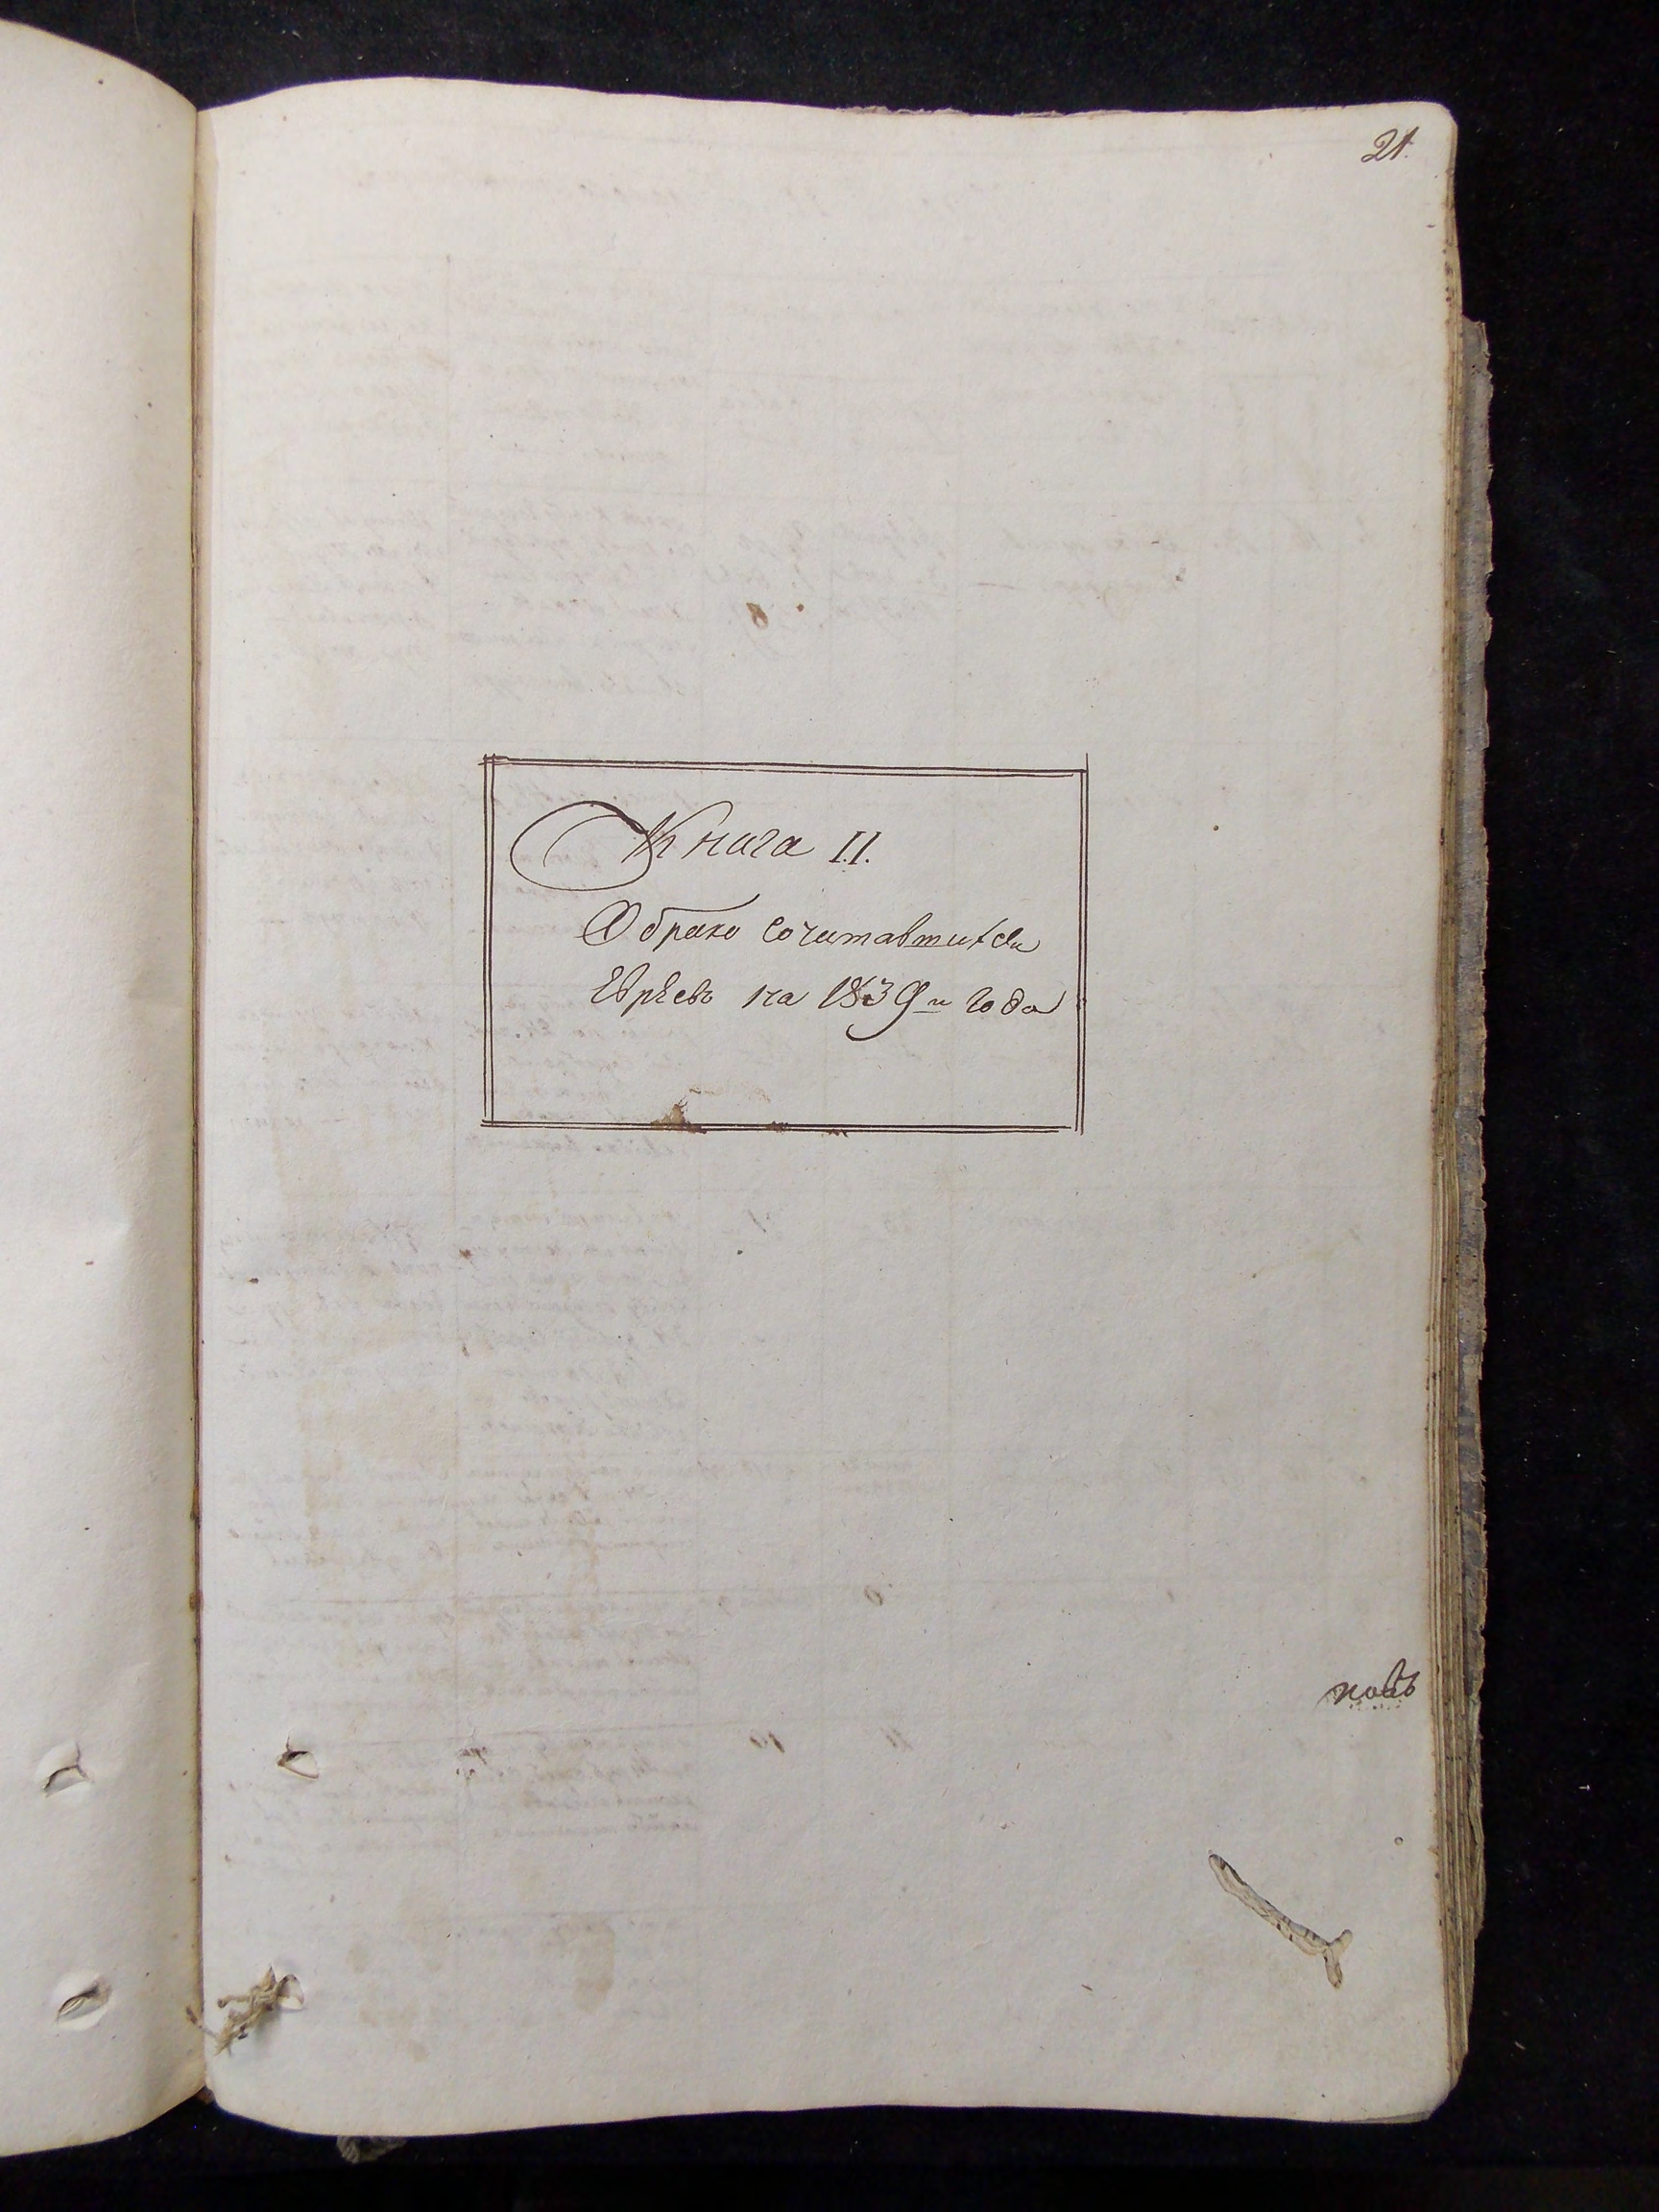 21.
Книга II.
О брако сочитавшихся
Евреевъ на 1839й года